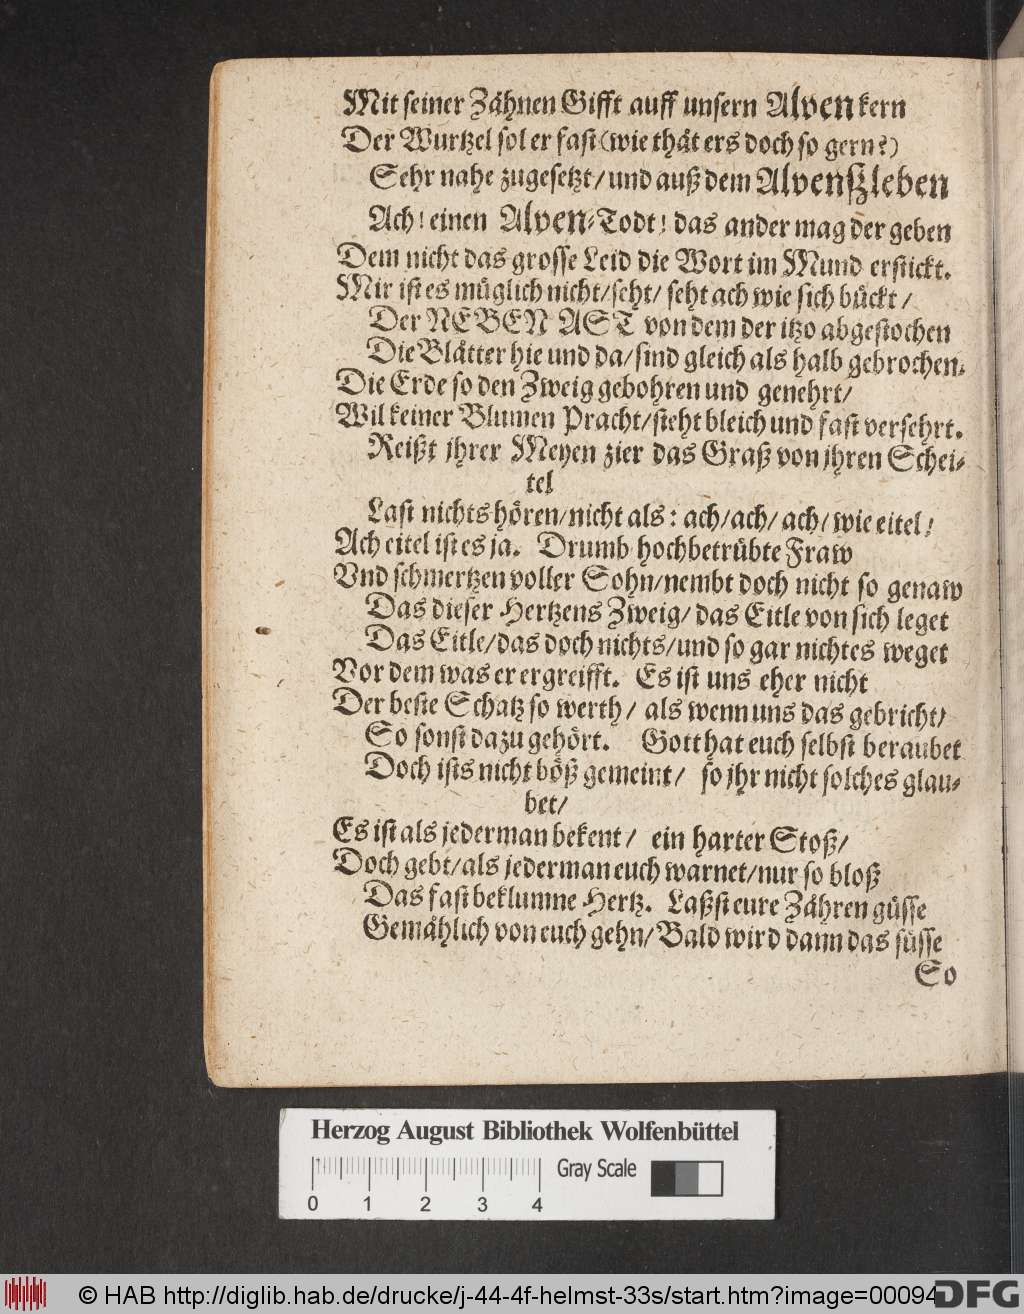 Mit seiner Zähnen Gifft auff unsern Alvenkern
Der Wurtzel sol er fast (wie thät ers doch so gern?)
Sehr nahe zugesetzt/ und auß dem Alvenßleben
Ach! einen Alven-Todt! das ander mag der geben
Dem nicht das grosse Leid die Wort im Mund erstickt.
Mir ist es müglich nicht/ seht/ seht ach wie sich bückt/
Der NEBEN AST von dem der itzo abgestochen
Die Blätter hie und da/ sind gleich als halb gebrochen.
Die Erde so den Zweig gebohren und genehrt/
Wil keiner Blumen Pracht/ steht bleich und fast versehrt.
Reißt jhrer Meyen zier das Graß von jhren Schei-
tel
Last nichts hören/ nicht als: ach/ ach/ ach/ wie eitel!
Ach eitel ist es ja. Drumb hochbetrübte Fraw
Vnd schmertzen voller Sohn/ nembt doch nicht so genaw
Das dieser Hertzens Zweig/ das Eitle von sich leget
Das Eitle/ das doch nichts/ und so gar nichtes weget
Vor dem was er ergreifft. Es ist uns eher nicht
Der beste Schatz so werth/ als wenn uns das gebricht/
So sonst dazu gehört. Gott hat euch selbst beraubet
Doch ists nicht böß gemeint/ so jhr nicht solches glau-
bet/
Es ist als jederman bekent/ ein harter Stoß/
Doch gebt/ als jederman euch warnet/ nur so bloß
Das fast beklumne Hertz. Laßst eure Zähren güsse
Gemählich von euch gehn/ Bald wird dann das süsse
So
Herzog August Bibliothek Wolfenbüttel
Gray Scale
0 1 2 3 4
© HAB http://diglib.hab.de/drucke/j-44-4f-helmst-33s/start.htm?image=00094
DFG